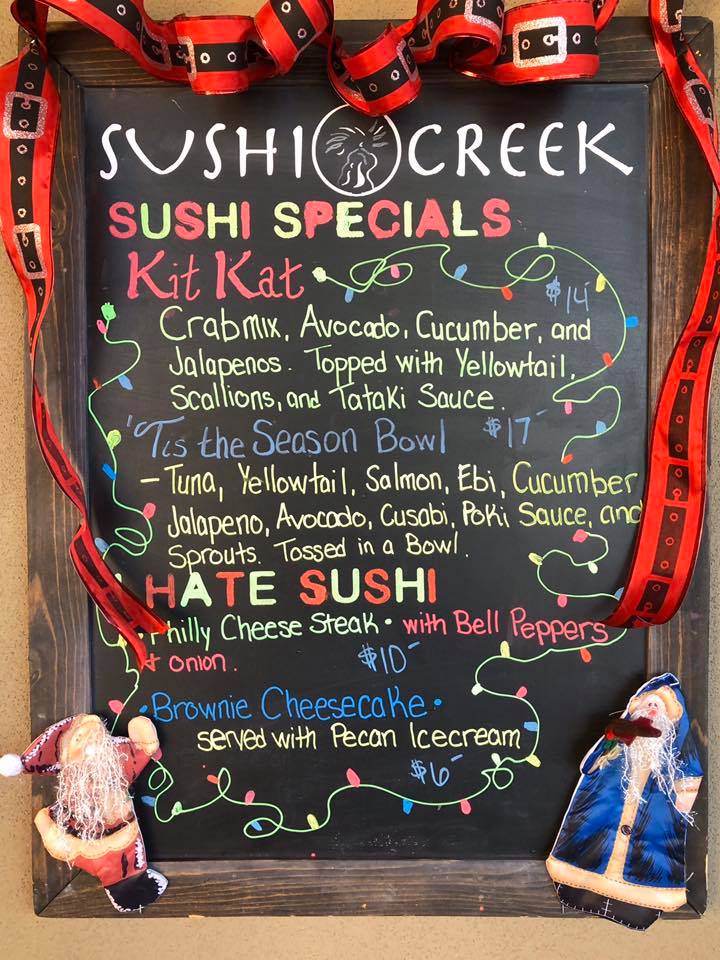 SUSHI CREEK
SUSHI SPECIALS
Kit Kat
$14
Crabmix, Avocado, Cucumber, and
Jalapenos. Topped with Yellowtail,
Scallions, and Tataki Sauce.
'Tis the Season Bowl $17
- Tuna, Yellowtail, Salmon, Ebi, Cucumber
Jalapeno, Avocado, Cusabi, Poki Sauce, and
Sprouts. Tossed in a Bowl.
I HATE SUSHI
• Philly Cheese Steak • with Bell Peppers
+ onion. $10
• Brownie Cheesecake •
served with Pecan Icecream
$6